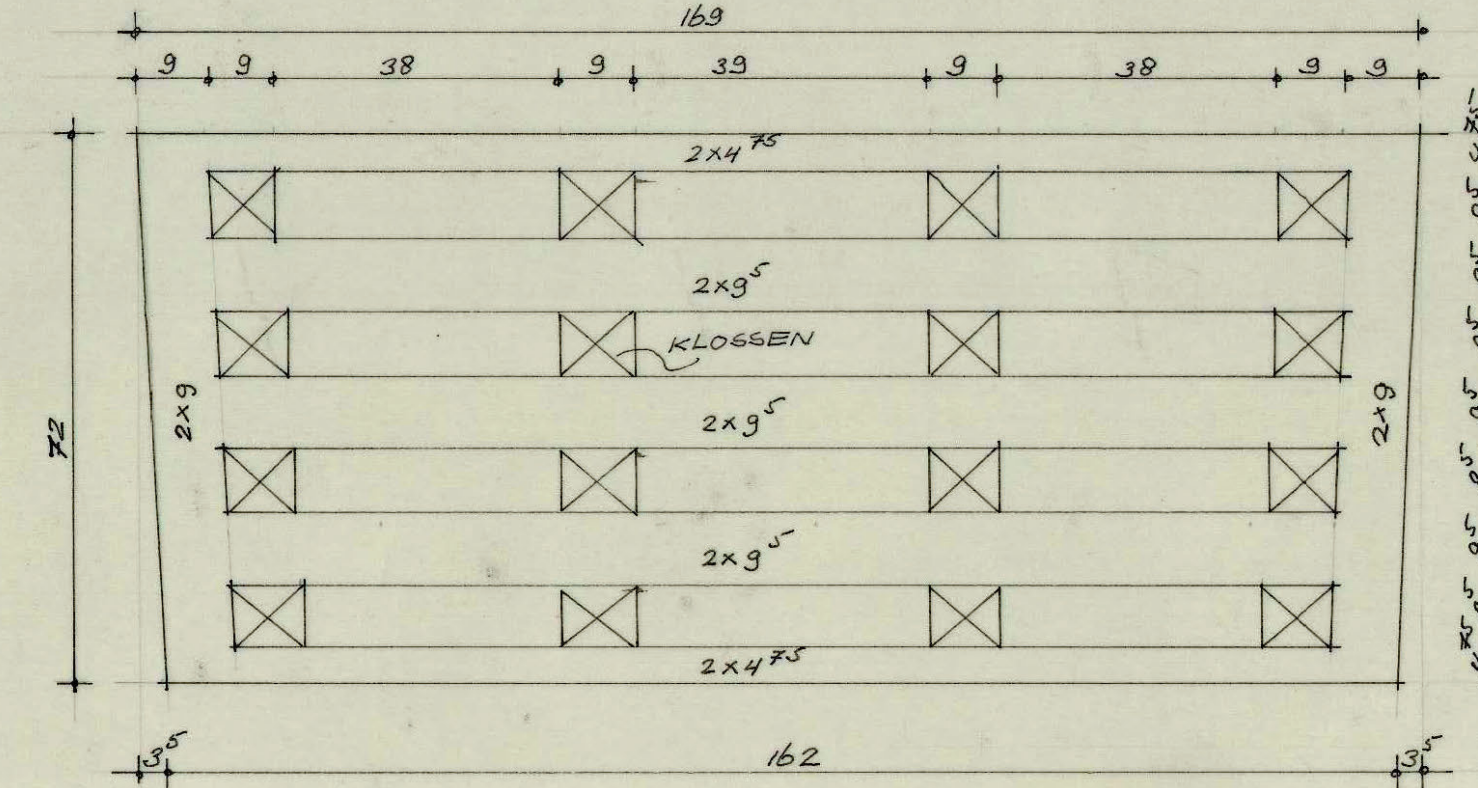 169
9 9 38 9 39 9 38 9 9
2x4 75
2x9 5
KLOSSEN
2x9
72
2x9 5
2x9
2x9 5
2x4 75
3 5 162 3 5